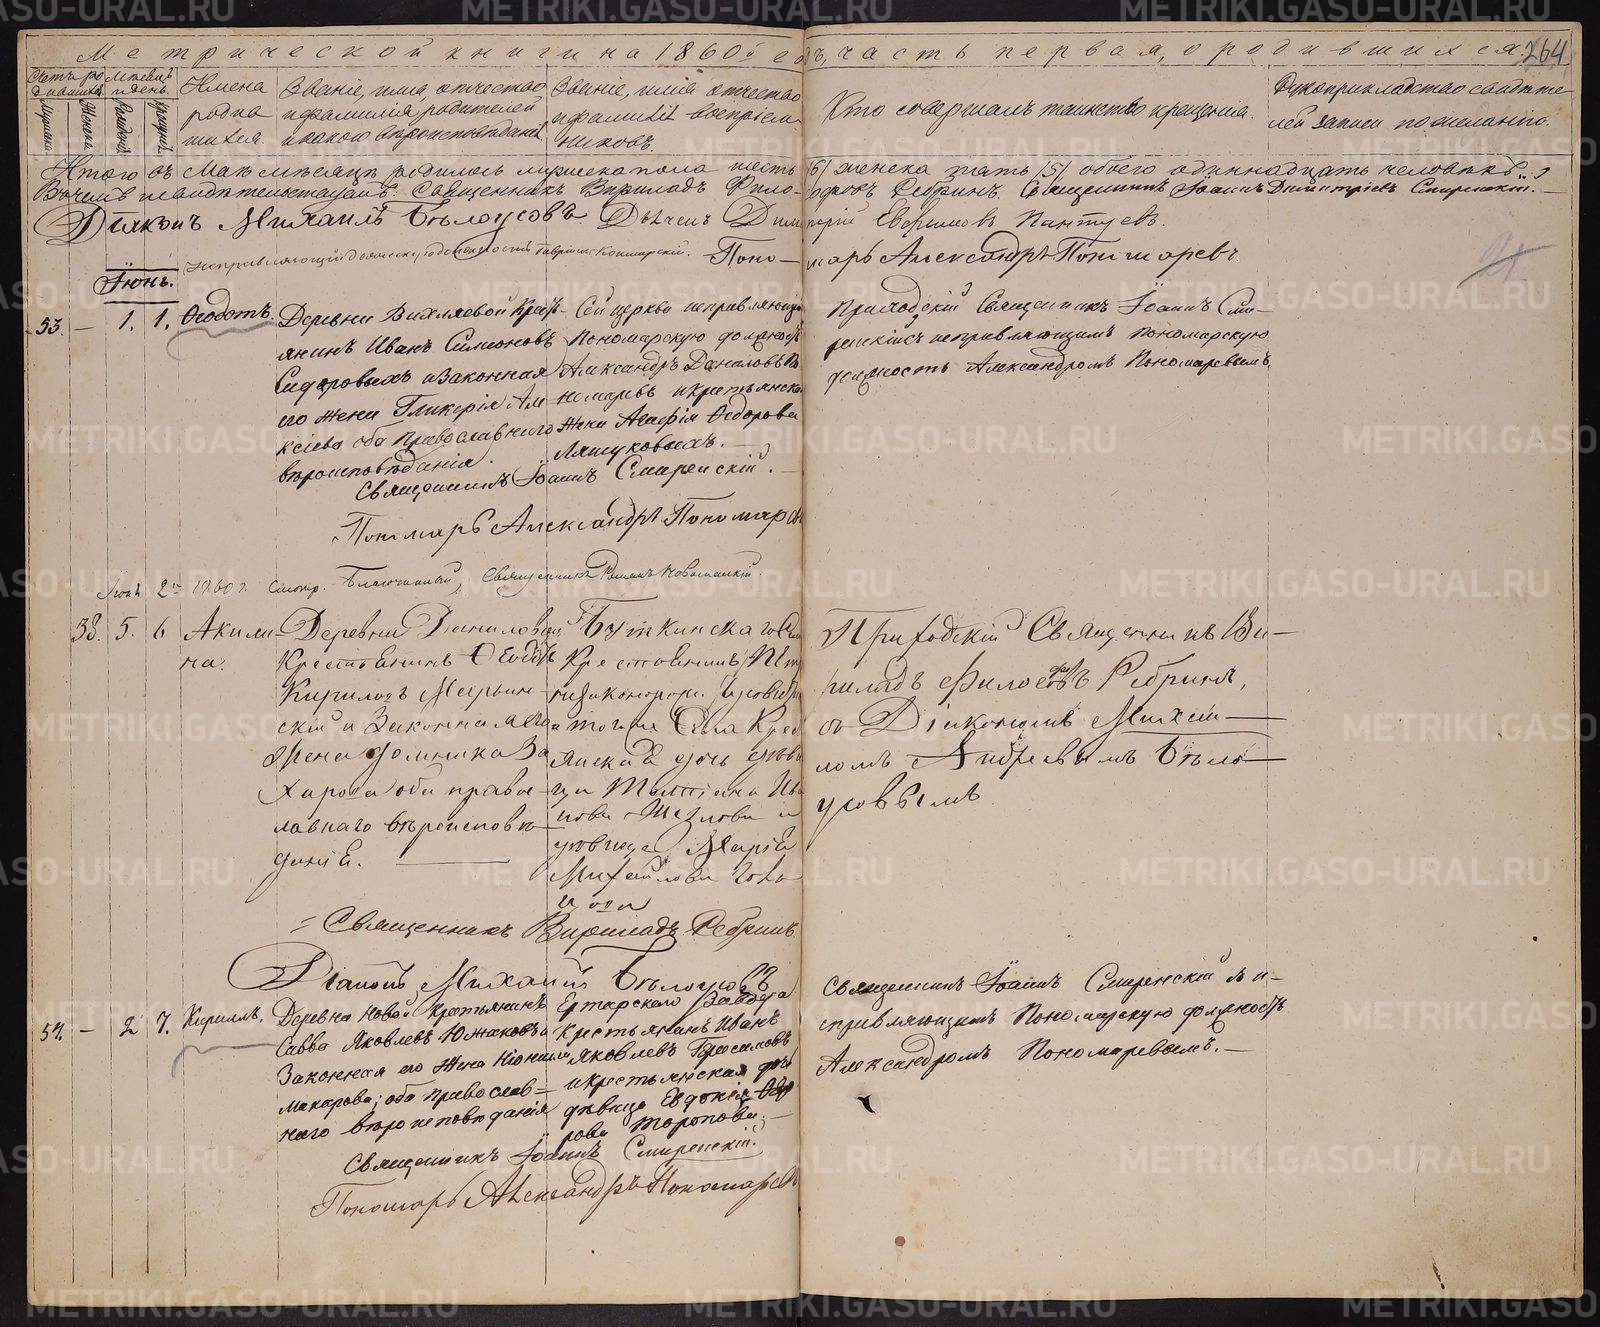 Метрической книги на 1860й годъ, часть первая, о родившихся. 264
Счетъ родившихся
Мѣсяцъ и день.
Мужеска
Женска
Рожденія
Крещенія
Имена родившихся.
Званіе, имя, отчество и фамилія родителей и какого вѣроисповѣданія
Званіе, имя отчество и фамилія воспріемниковъ.
Кто совершалъ таинство крещенія.
Рукоприкладство свидѣтелей записи по желанію.
Итого въ Маѣ мѣсяцѣ родилось мужеска пола шесть /6/ женска пять /5/ обоего одиннадцать человѣкъ.
Въ чемъ и свидѣтельствуемъ: Священникъ Вириладъ Философовъ Ребринъ. Священникъ Іоаннъ Димитріевъ Смиренскій.
Діаконъ Михаилъ Бѣлоусовъ Дьячекъ Димитрій Евфимовъ Пантуевъ.
исправляющій дьяческую должность Гавріилъ
Пономарь Александръ Пономаревъ.
Іюнь.
53. — 1. 1. Ѳеодотъ.
Деревни Вихляевой Кресть-
янинъ Иванъ Симеоновъ
Сидоровыхъ и законная
его жена Гликерія Але-
ксіева оба православнаго
вѣроисповѣданія.
Сей церкви исправляющій
Пономарскую должность
Александръ Даниловъ По-
номаревъ и крестьянская
жена Агафія Ѳедорова
Ляпуковыхъ.
Приходскій Священникъ Іоаннъ Сми-
ренскій съ исправляющимъ пономарскую
должность Александромъ Пономаревымъ.
Священникъ Іоаннъ Смиренскій.
Пономарь Александръ Пономаревъ
Іюня 2го 1860 г. Смотр. Благочинный, Священникъ Романъ
38. 5. 6 Акили-
на.
Деревни Даниловой
Крестьянинъ Ѳеодотъ
Кирилловъ Марьин-
скій и Законная его
Жена Домника За-
харова оба правос-
лавнаго вѣроисповѣ-
данія.
Буткинскаго
Крестьянинъ
и тогоже Села Крес
янская дочь дѣви
ца Татіана Ива
нова
дѣвица Марія
Михайлова
Приходскій Священникъ Ви-
риладъ Философовъ Ребринъ,
съ Діакономъ Михаи-
ломъ Андреевымъ Бѣло-
усовымъ
Священникъ Вириладъ Ребринъ
Діаконъ Михаилъ Бѣлоусовъ
54. — 2 7. Кириллъ.
Деревни Новой Крестьянинъ
Савва Яковлевъ Южаковъ и
Законная его жена Неонила
Макарова; оба православ-
наго вѣроисповѣданія
Ертарскаго Завода
Крестьянинъ Иванъ
Яковлевъ Герасимовъ
и крестьянская дочь
дѣвица Евдокія Ѳедо
рова Торопова.
Священникъ Іоаннъ Смиренскій съ и-
справляющимъ Пономарскую должность
Александромъ Пономаревымъ.
Священникъ Іоаннъ Смиренскій.
Пономарь Александръ Пономаревъ
METRIKI.GASO-URAL.RU